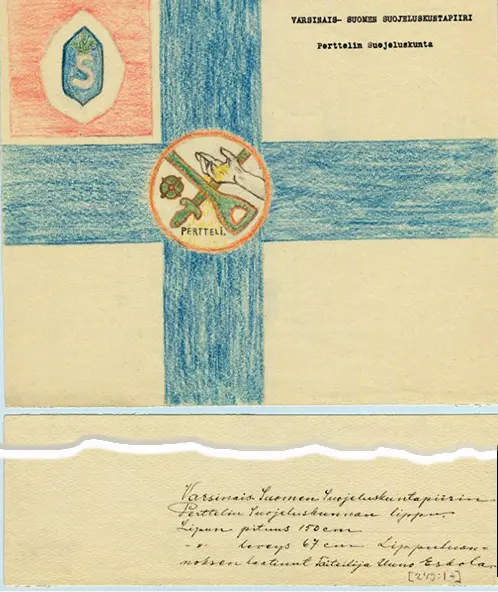 VARSINAIS- SUOMEN SUOJELUSKUNTAPIIRI
Perttelin Suojeluskunta
S
PERTTELI.
Varsinais-Suomen Suojeluskuntapiirin
Perttelin Suojeluskunnan lippu.
Lipun pituus 150 cm
-"- leveys 67 cm Lippuluon-
noksen laatinut Taiteilija Uuno Eskola.